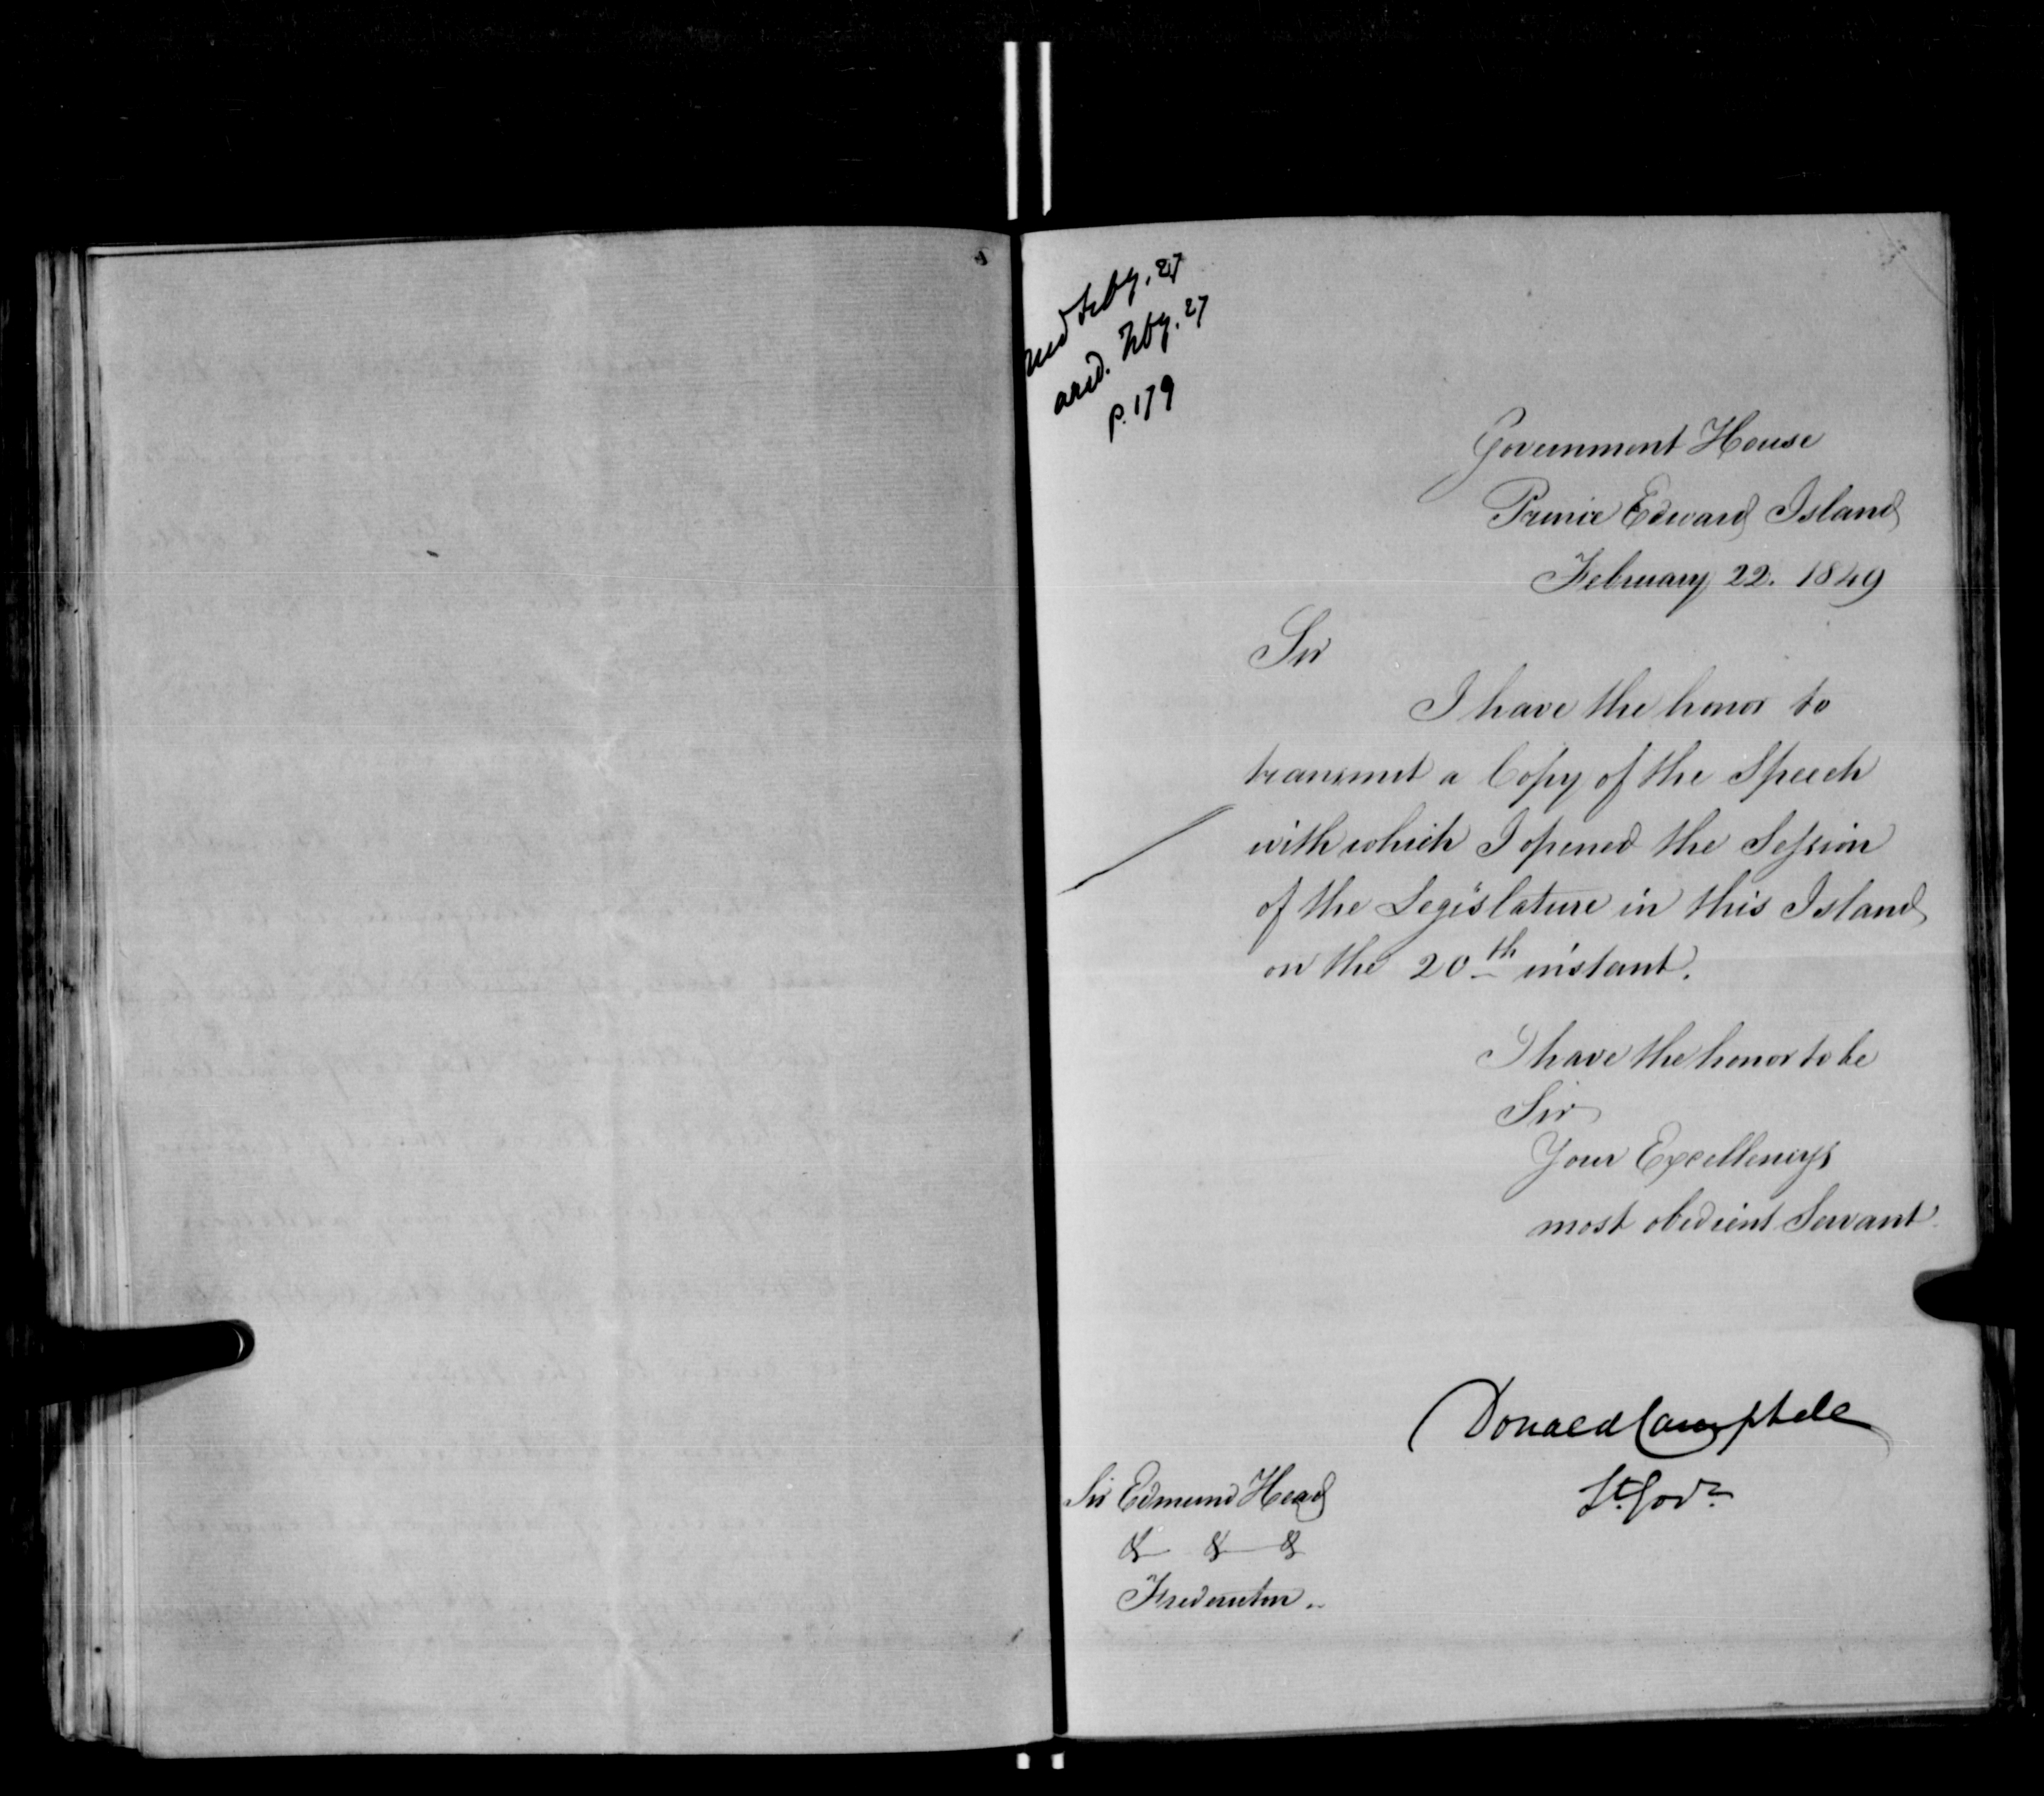 recd Feby. 27
ansd. Feby. 27
p. 179
Government House
Prince Edward Island
February 22. 1849
Sir
I have the honor to
transmit a Copy of the Speech
with which I opened the Session
of the Legislature in this Island
on the 20th instant.
I have the honor to be
Sir
Your Excellency's
most obedient Servant
Donald Campbell
Lt. Govr.
Sir Edmund Head
& & &
Fredericton